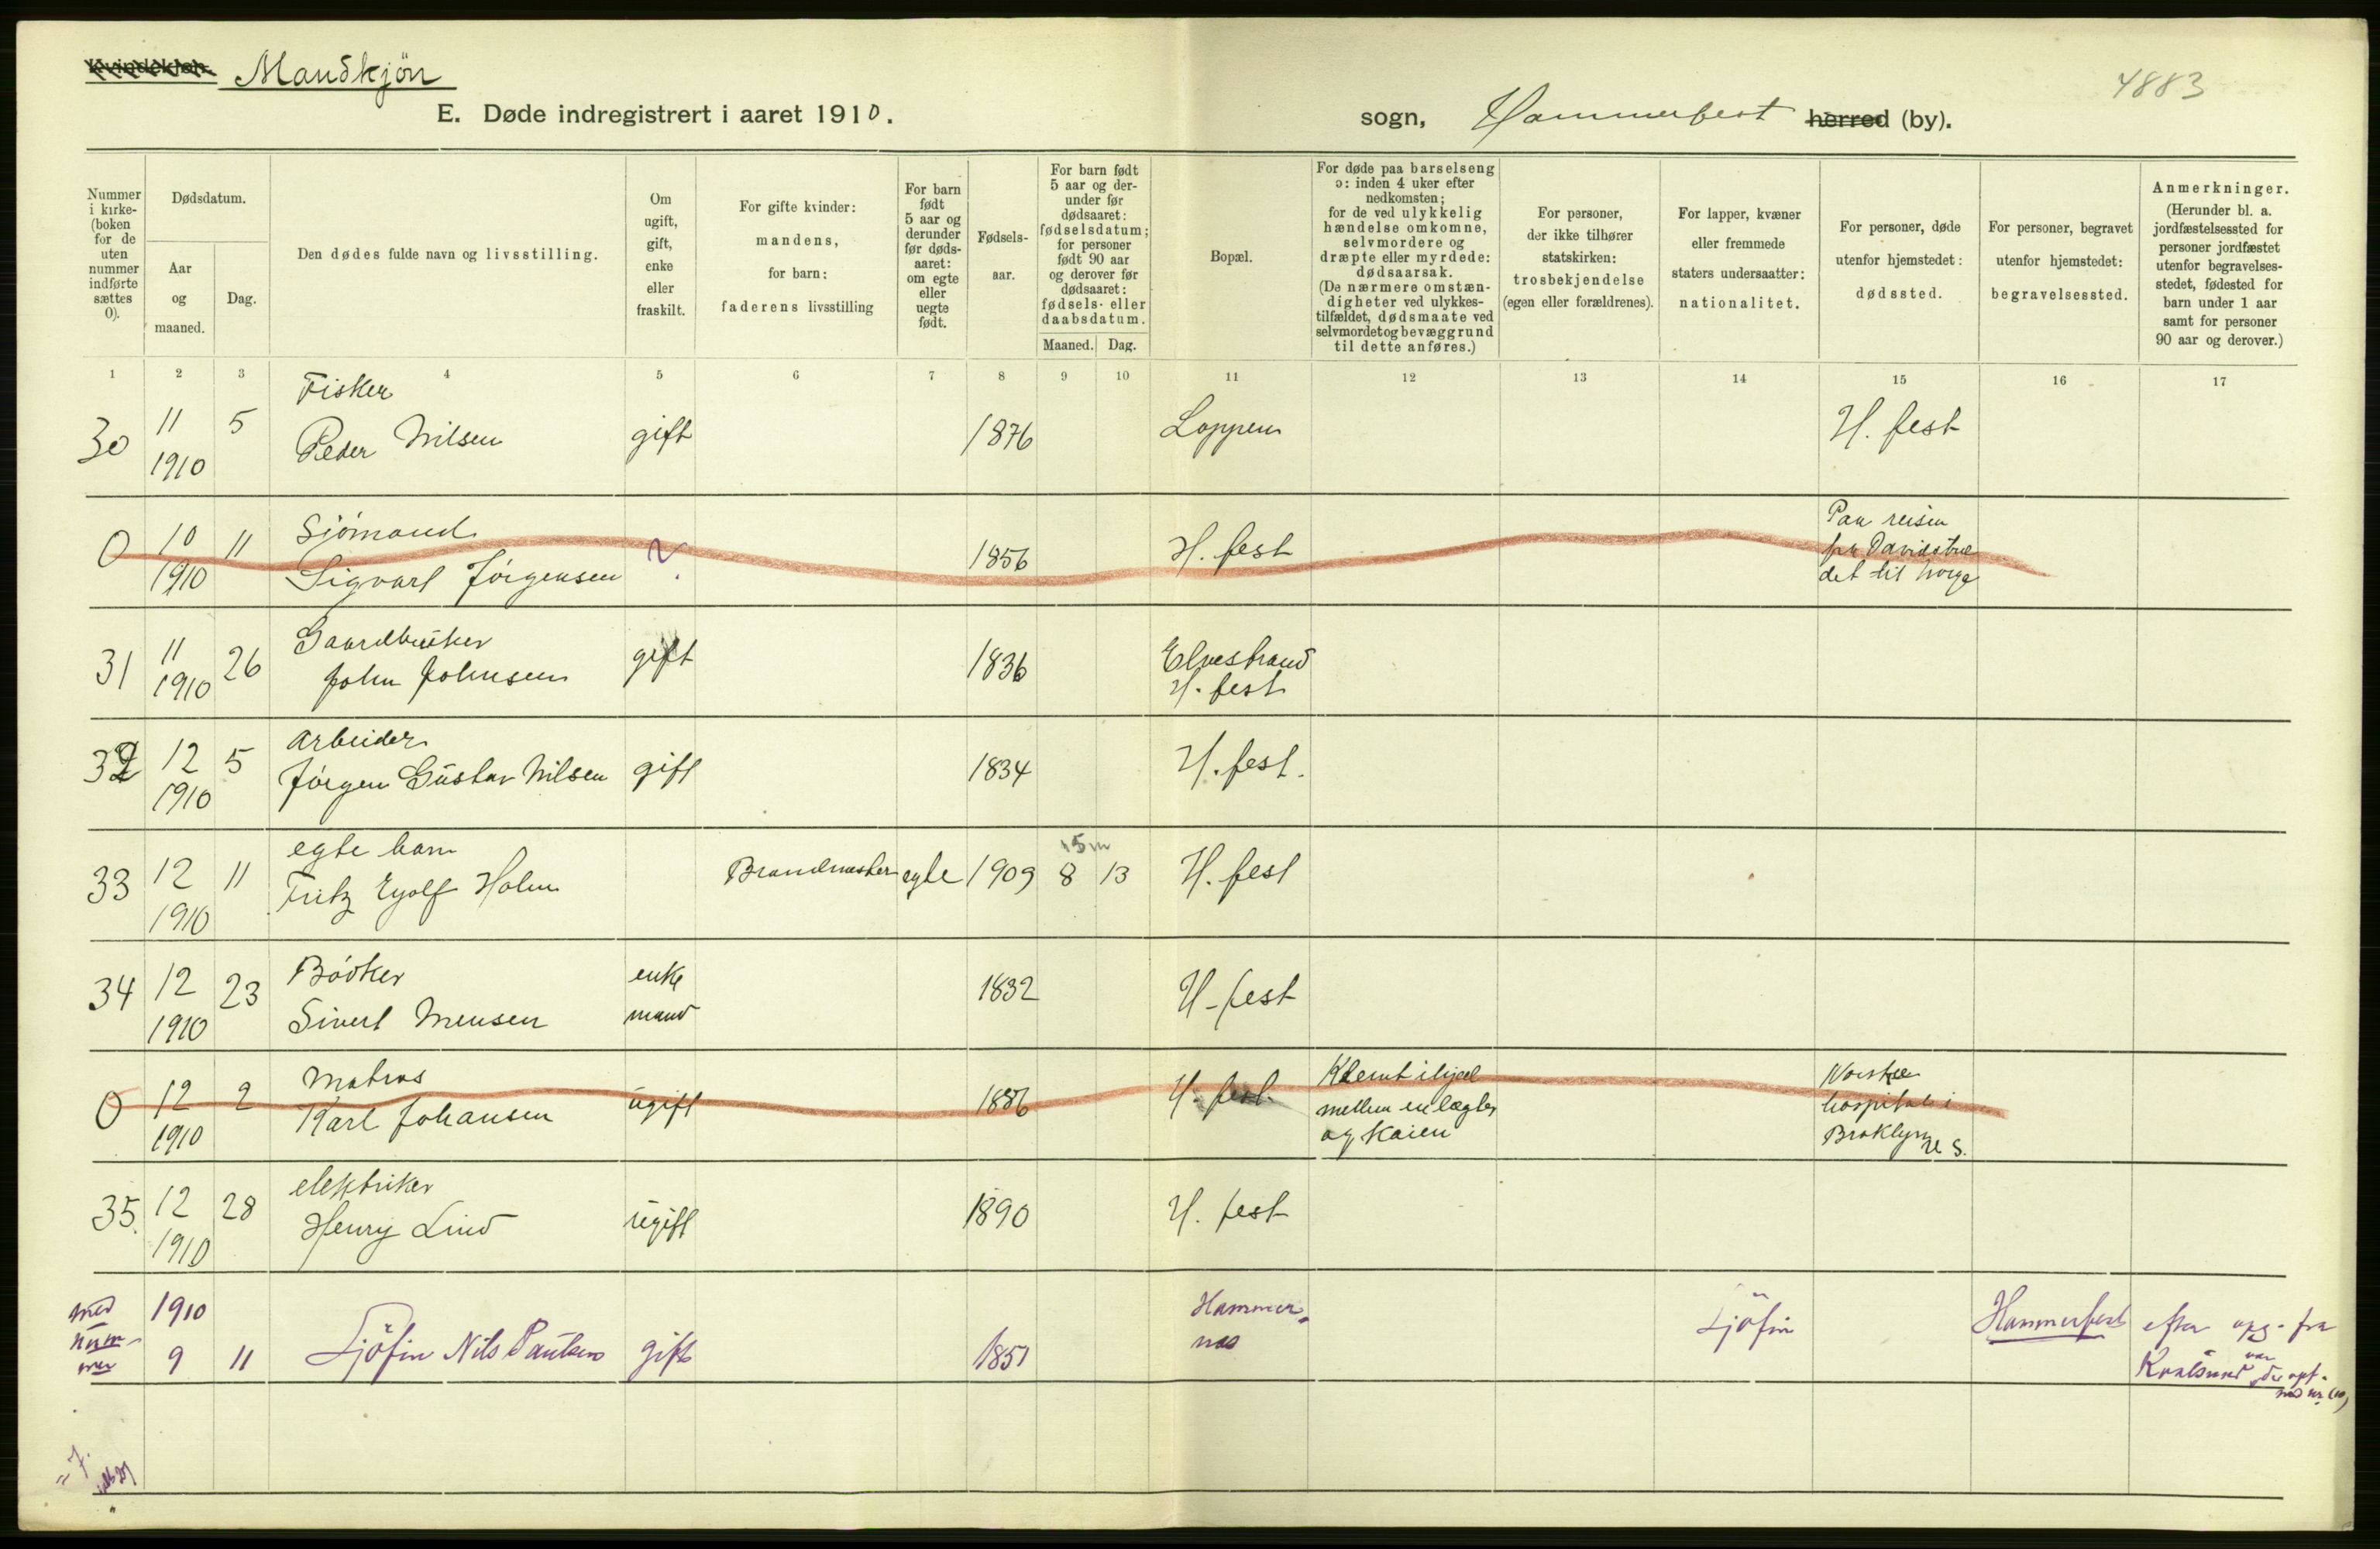 Kvindekjøn. Mandkjøn
4883
E. Døde indregistrert i aaret 1910.
sogn, Hammerfest herred (by).
Nummer i kirke-(boken for de uten nummer indførte sættes 0).
Dødsdatum.
Aar og maaned.
Dag.
Den dødes fulde navn og livsstilling.
Om ugift, gift, enke eller fraskilt.
For gifte kvinder: mandens, for barn: faderens livsstilling
For barn født 5 aar og derunder før døds-aaret: om egte eller uegte født.
Fødsels-aar.
For barn født 5 aar og der-under før dødsaaret: fødselsdatum; for personer født 90 aar og derover før dødsaaret: fødsels- eller daabsdatum.
Maaned. Dag.
Bopæl.
For døde paa barselseng ɔ: inden 4 uker efter nedkomsten; for de ved ulykkelig hændelse omkomne, selvmordere og dræpte eller myrdede: dødsaarsak. (De nærmere omstæn-digheter ved ulykkes-tilfældet, dødsmaate ved selvmordet og bevæggrund til dette anføres.)
For personer, der ikke tilhører statskirken: trosbekjendelse (egen eller forældrenes).
For lapper, kvæner eller fremmede staters undersaatter: nationalitet.
For personer, døde utenfor hjemstedet: dødssted.
For personer, begravet utenfor hjemstedet: begravelsessted.
Anmerkninger. (Herunder bl. a. jordfæstelsessted for personer jordfæstet utenfor begravelses-stedet, fødested for barn under 1 aar samt for personer 90 aar og derover.)
1 2 3 4 5 6 7 8 9 10 11 12 13 14 15 16 17
30 11 1910 5 Fisker Peder Nilsen gift 1876 Loppen H. fest
0 10 1910 11 Sjømand Sigvart Jørgensen ? 1856 H. fest Paa reisen fra Davidstræ det til Norge
31 11 1910 26 Gaardbruker John Johnsen gift 1836 Elvestrand H. fest
32 12 1910 5 Arbeider Jørgen Gustav Nilsen gift 1834 H. fest.
33 12 1910 11 egte barn Fritz Eyolf Holm Brandmester egte 1909 15 m 8 13 H. fest
34 12 1910 23 Bødker Sivert Monsen enke mand 1832 H-fest
0 12 1910 2 Matros Karl Johansen ugift 1886 H. fest. Klemt ihjæl mellem en lægter og kaien Norske hospital i Broklyn U S.
35. 12 1910 28 elektriker Henry Lind ugift 1890 H. fest
med num-mer 1910 9 11 Sjöfin Nils Paulsen gift 1851 Hammer-nes Sjöfin Hammerfest efter opg. fra Kvalsund var der opf. med nr. (10)
"7.